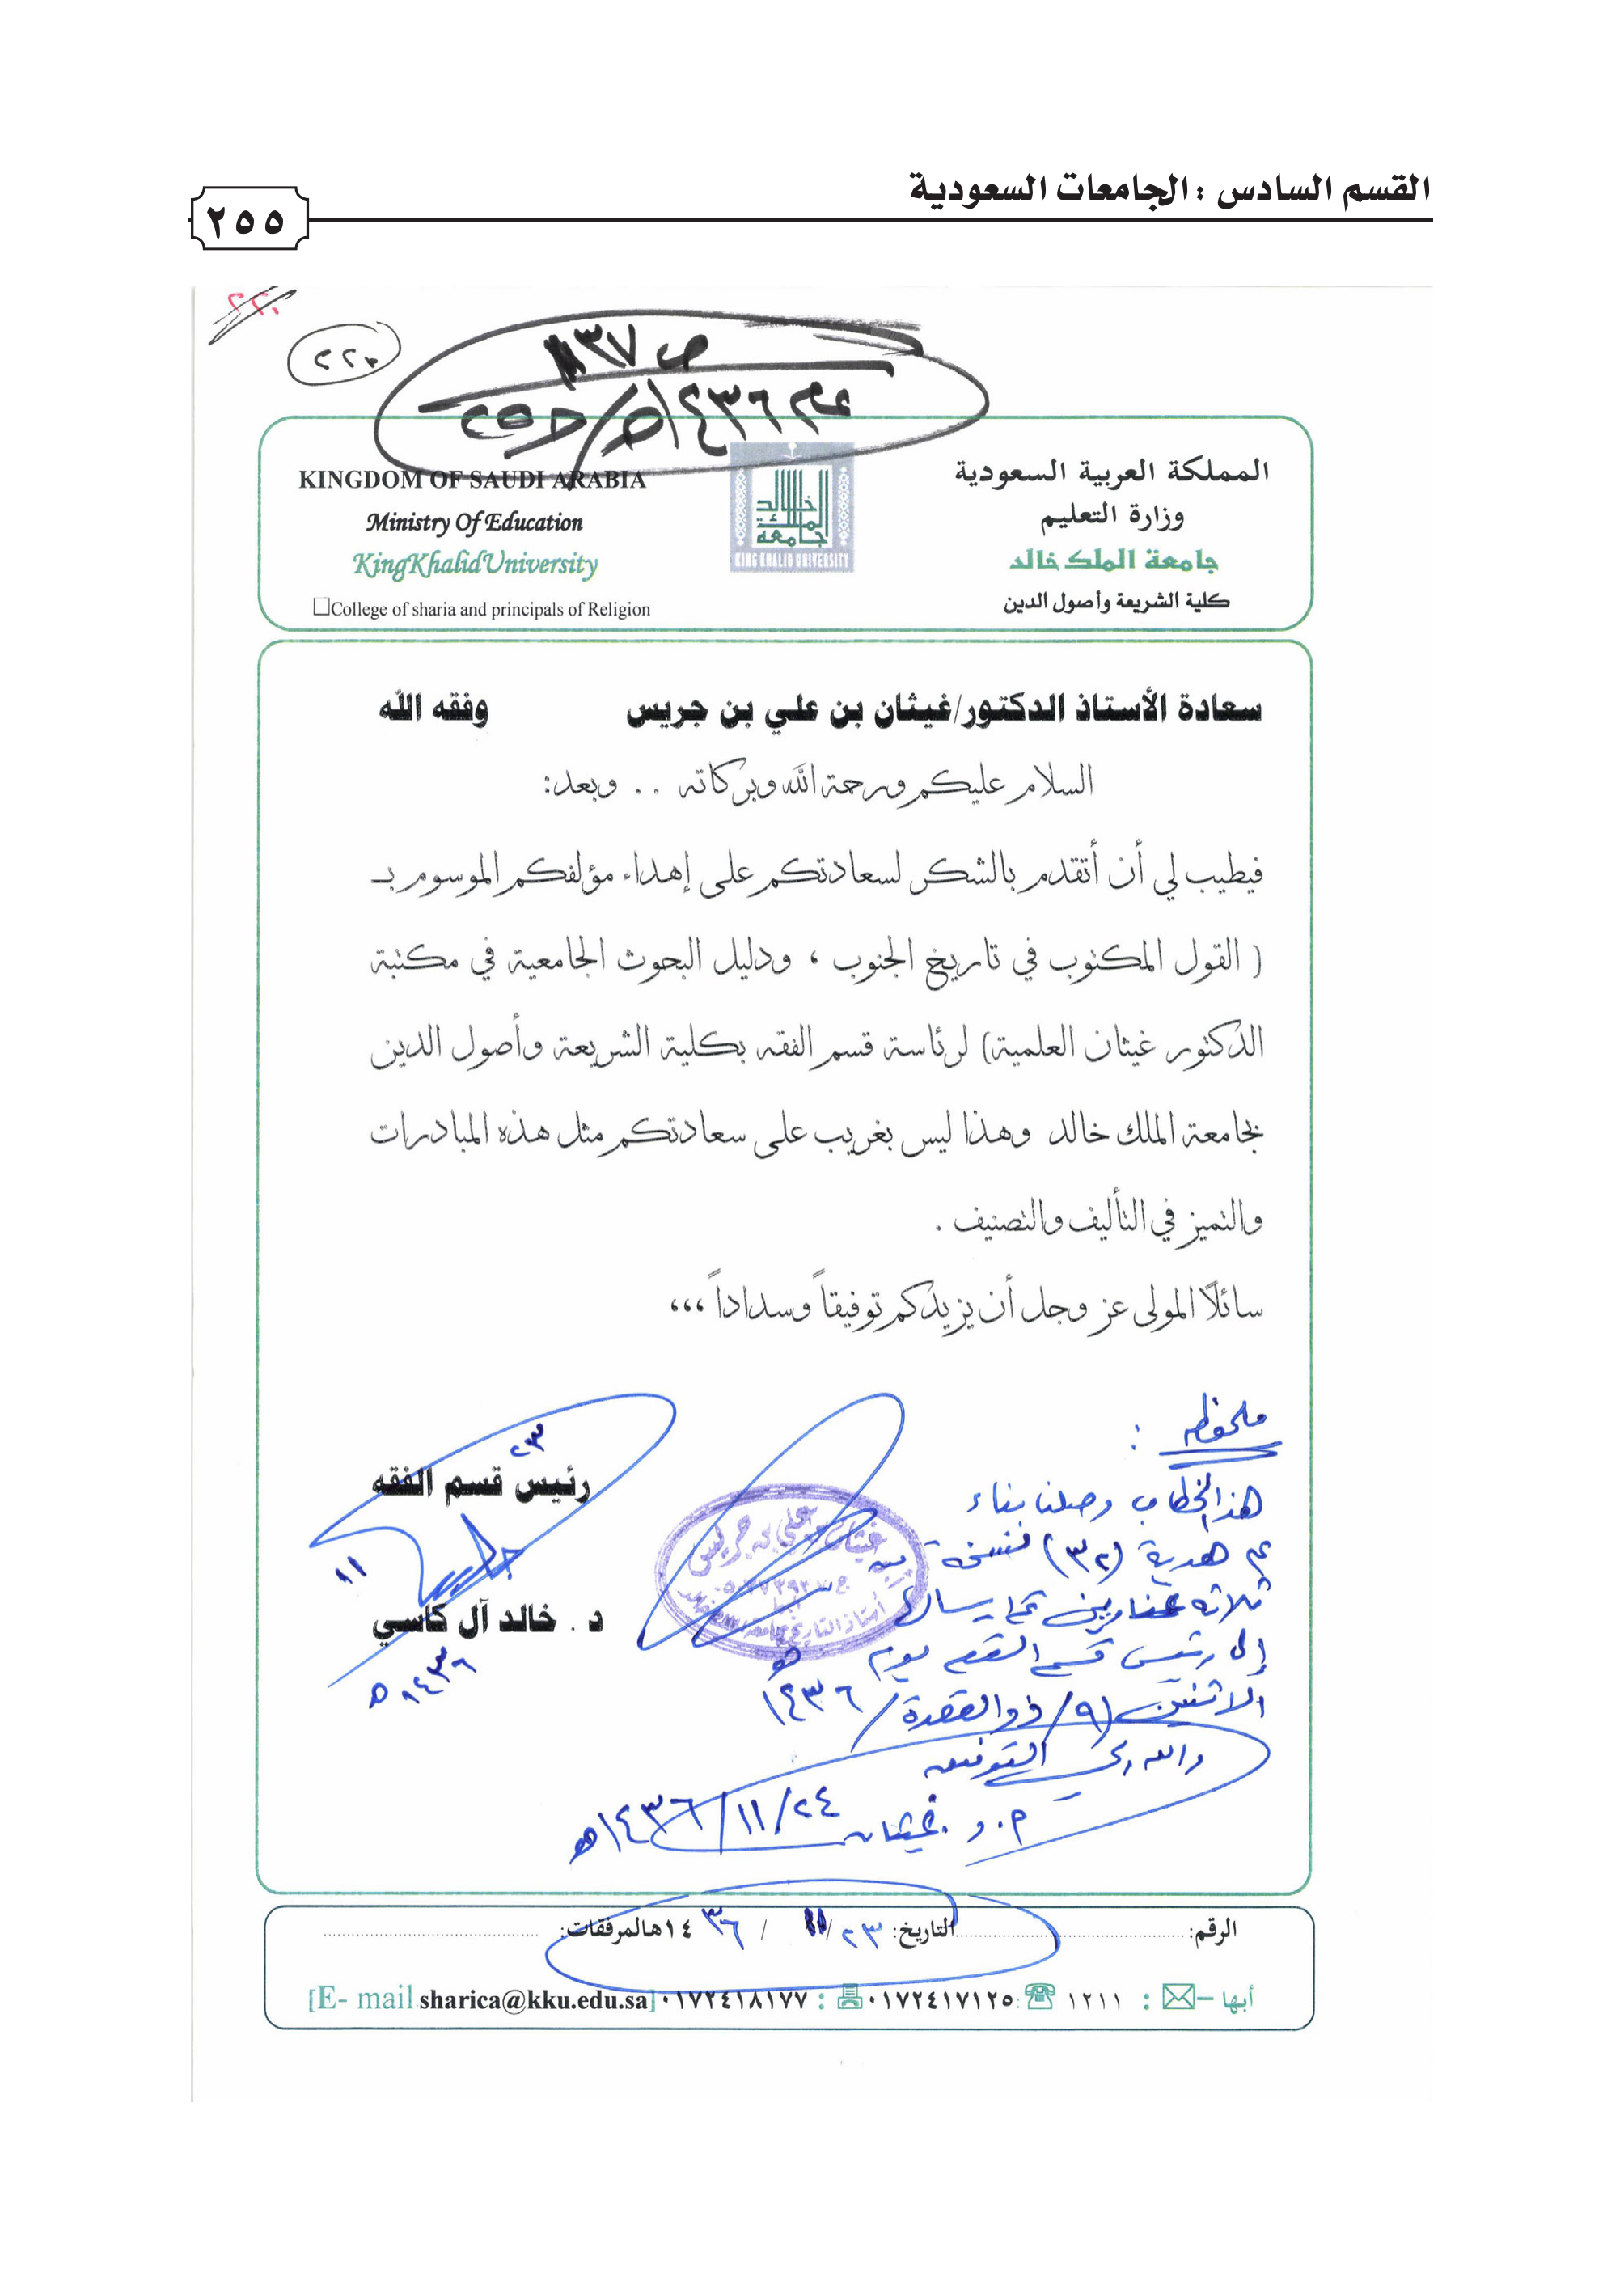 القسم السادس : الجامعات السعودية
٢٥٥
٢٢٠
٢٢٠
ص ٨٣٧
عام ١٤٣٦هـ/
المملكة العربية السعودية
وزارة التعليم
جامعة الملك خالد
كلية الشريعة وأصول الدين
جامعة الملك خالد
KING KHALID UNIVERSITY
KINGDOM OF SAUDI ARABIA
Ministry Of Education
KingKhalidUniversity
College of sharia and principals of Religion
سعادة الأستاذ الدكتور/غيثان بن علي بن جريس وفقه الله
السلام عليكم ورحمة الله وبركاته .. وبعد:
فيطيب لي أن أتقدم بالشكر لسعادتكم على إهداء مؤلفكم الموسوم بـ
( القول المكتوب في تاريخ الجنوب ، ودليل البحوث الجامعية في مكتبة
الدكتور غيثان العلمية) لرئاسة قسم الفقه بكلية الشريعة وأصول الدين
بجامعة الملك خالد وهذا ليس بغريب على سعادتكم مثل هذه المبادرات
والتميز في التأليف والتصنيف .
سائلاً المولى عز وجل أن يزيدكم توفيقاً وسداداً ،،،
رئيس قسم الفقه
٢٣
١١
د . خالد آل كاسي
١٤٣٦هـ
غيثان بن علي بن جريس
أستاذ التاريخ بجامعة الملك خالد
ملحوظة :
هذا الخطاب وصلنا بناء
على هدية (٣٢) نسخة من
ثلاثة عناوين تم إرسالها
إلى رئيس قسم الفقه يوم
الاثنين (٩/ ذو القعدة/ ١٤٣٦هـ
والله ولي التوفيق
أ. د . غيثان ٢٤/ ١١/ ١٤٣٦هـ
الرقم: التاريخ: ٢٣/ ١١ / ٣٦ ١٤هـالمرفقات:
أبها – : ١٢١١ :٠١٧٢٤١٧١٢٥ : ٠١٧٢٤١٨١٧٧ [E- mail sharica@kku.edu.sa]